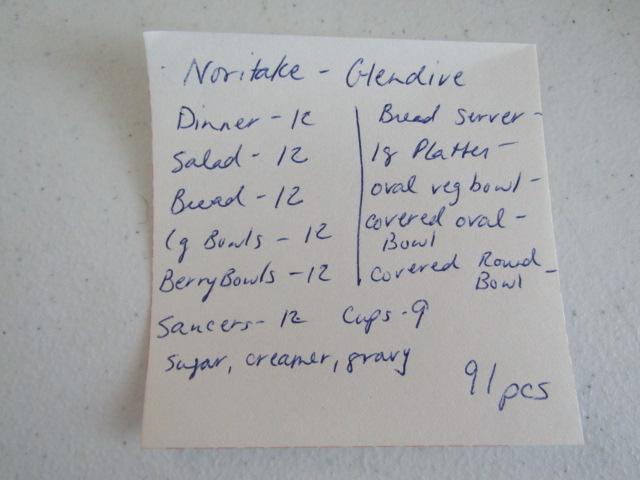 Noritake - Glendive
Dinner - 12
Salad - 12
Bread - 12
lg Bowls - 12
Berry Bowls - 12
Saucers - 12 Cups - 9
Sugar, creamer, gravy
Bread Server -
lg Platter -
oval veg bowl -
covered oval -
Bowl
covered Round -
Bowl
91 pcs